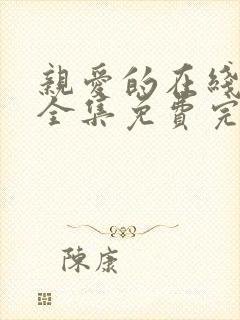 親愛的在綫
全集免費完
陳康